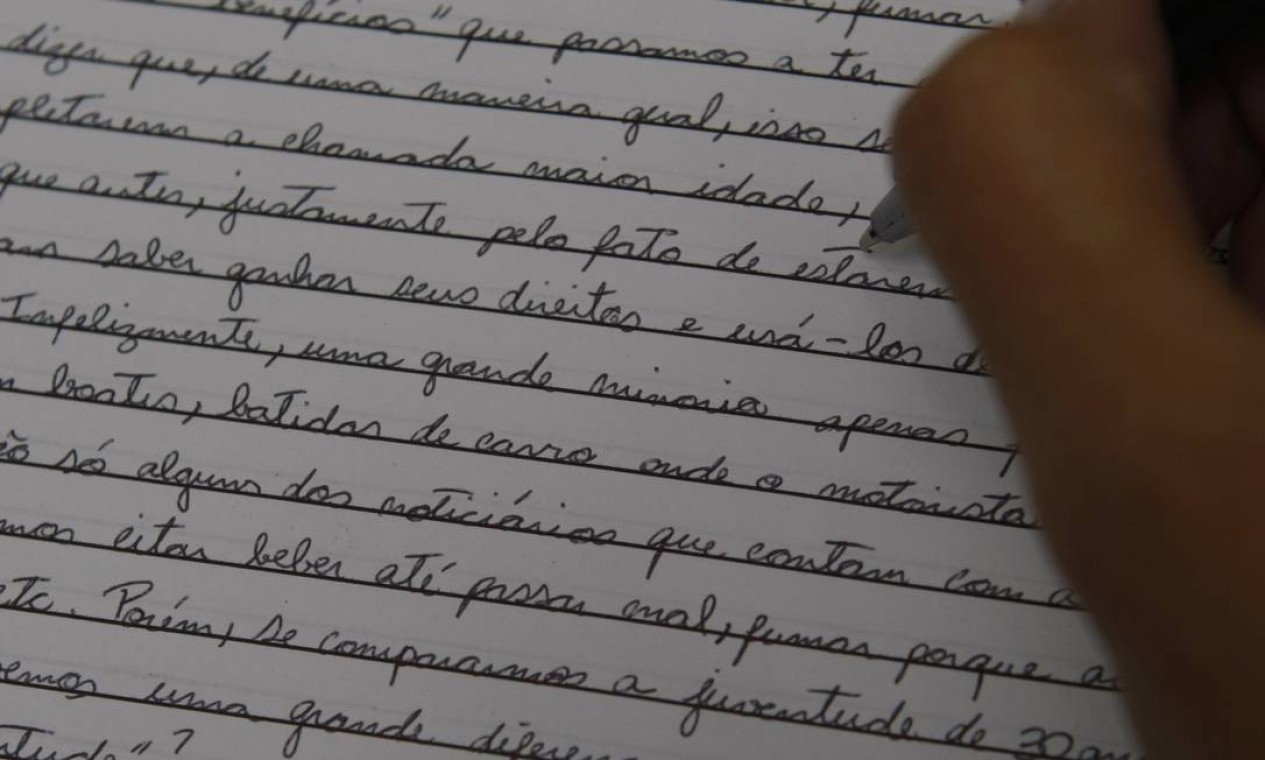 , fumar
benefícios" que passamos a ter
dizer que, de uma maneira geral, isso se
pletarem a chamada maior idade,
que antes, justamente pelo fato de estarem
saber ganhar seus direitos e usá-los de
Infelizmente, uma grande minoria apenas
boates, batidas de carro onde o motorista
ão só alguns dos noticiários que contam com a
mos citar beber até passar mal, fumar porque a
etc. Porém, se compararmos a juventude de 30 an
emos uma grande diferen
tude"?